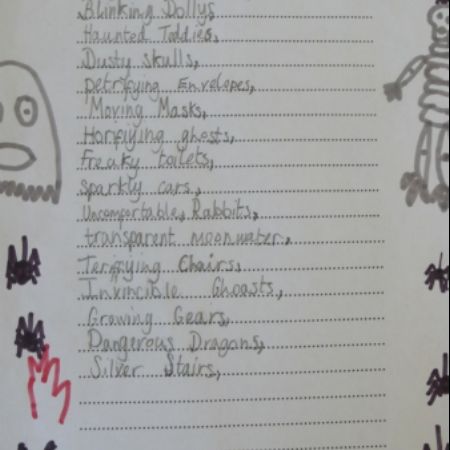 Blinking Dollys
Haunted Teddies,
Dusty skulls,
petrifying Envelopes,
Moving Masks,
Horifiying ghosts,
freaky toilets,
sparkly cars,
Uncomfortable, Rabbits,
transparent moonwater,
Terifiying Chairs,
Invincible Ghoasts,
Growing Gears,
Dangerous Dragons,
Silver Stairs,